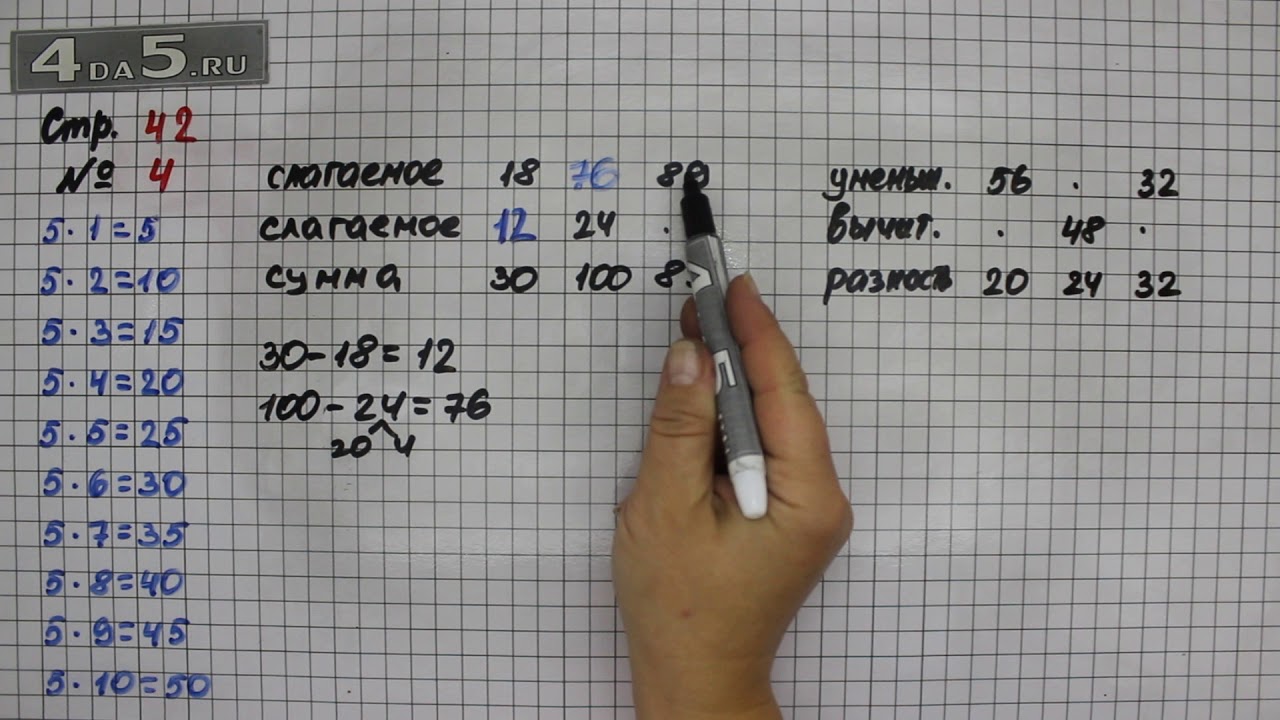 4DA5.RU
Стр. 42
№ 4
5·1=5
5·2=10
5·3=15
5·4=20
5·5=25
5·6=30
5·7=35
5·8=40
5·9=45
5·10=50
слагаемое 18 76
слагаемое 12 24 .
сумма 30 100
30-18=12
100-24=76
20 4
уменьш. 56 . 32
вычит. . 48 .
разность 20 24 32